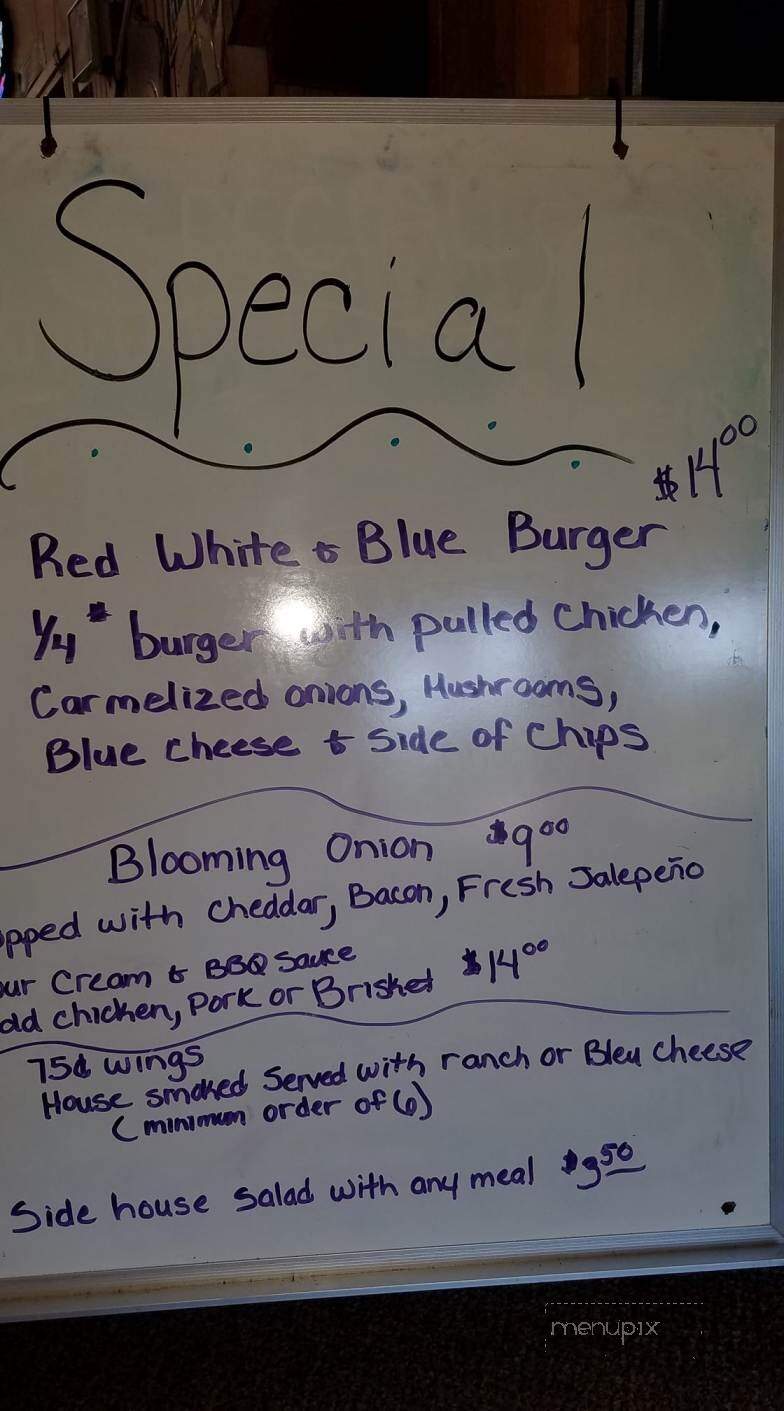 Special
$14.00
Red White & Blue Burger
1/4 # burger with pulled chicken,
Carmelized onions, Mushrooms,
Blue cheese & side of chips
Blooming Onion $9.00
opped with cheddar, Bacon, Fresh Jalepeño
our Cream & BBQ Sauce
add chicken, Pork or Brisket $14.00
75¢ wings
House smoked Served with ranch or Bleu cheese
(minimum order of 6)
Side house Salad with any meal $3.50
menupix